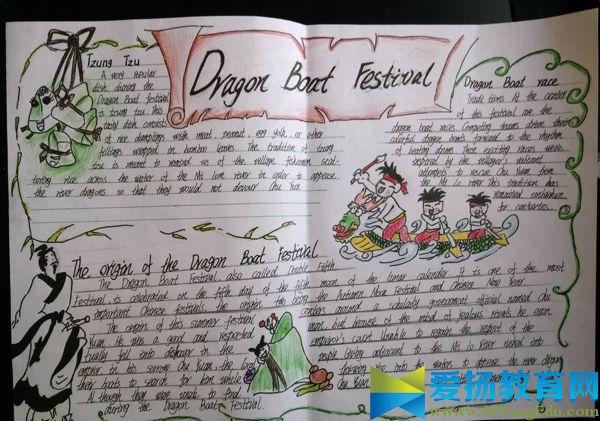 Dragon Boat Festival
Tzung Tzu
A very popular
dish during the
Dragon Boat festival
is tzung tzu. This
tasty dish consists
of rice dumplings with meat, peanut, egg yolk, or other
fillings wrapped in bamboo leaves. The tradition of tzung
tzu is meant to remind us of the village fishermen scat-
tering rice across the water of the Mi Low river in order to appease
the river dragons so that they would not devour Chu Yuan.
Dragon Boat race
Traditions At the center
of this festival are the
dragon boat races. Competing teams drive their
colorful dragon boats forward to the rhythm
of beating drums. These exciting races were
inspired by the villager's valiant
attempts to rescue Chu Yuan from
the Mi Lo river. This tradition has
remained unbroken
for centuries.
The origin of the Dragon Boat Festival
The Dragon Boat Festival, also called Double Fifth
Festival, is celebrated on the fifth day of the fifth moon of the lunar calendar. It is one of the most
important Chinese festivals, the other two being the Autumn Moon Festival and Chinese New Year.
The origin of this summer festival centers around a scholarly government official named Chu
Yuan. He was a good and respected man, but because of the misdeeds of jealous rivals he even-
tually fell into disfavor in the emperor's court. Unable to regain the respect of the
emperor, in his sorrow Chu Yuan
people living adjacent to the Mi Lo River rushed into
their boats to search for him while
into the waters to appease the river
Although they were unable to find Chu Yuan
during the Dragon Boat Festival.
爱扬教育网
www.AiYangEdu.com